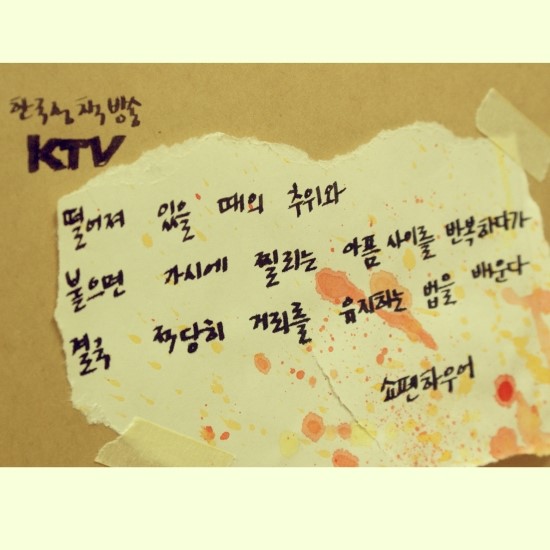 한국정책방송
KTV
떨어져 있을 때의 추위와
붙으면 가시에 찔리는 아픔 사이를 반복하다가
결국 적당히 거리를 유지하는 법을 배운다
쇼펜하우어